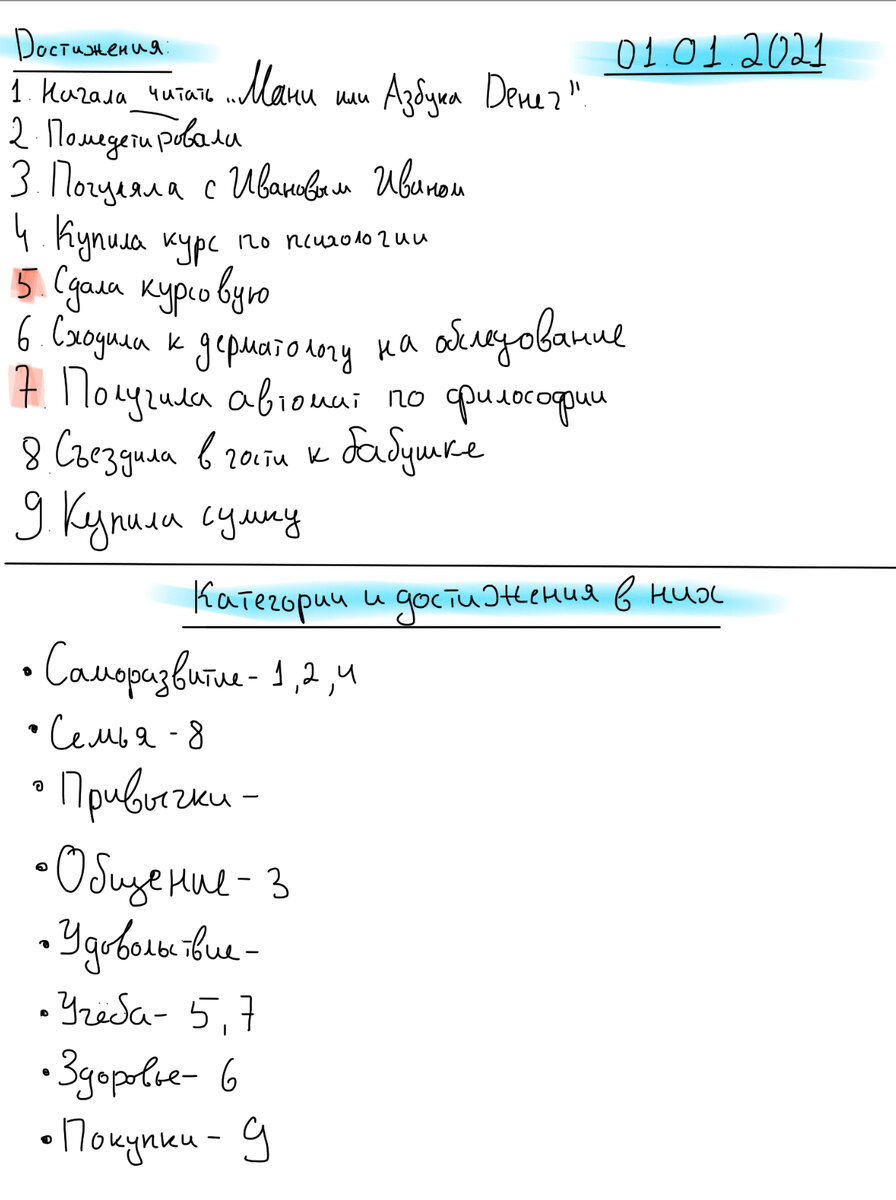 Достижения:
01.01.2021
1. Начала читать „Мани или Азбука Денег".
2. Помедетировали
3. Погуляла с Ивановым Иваном
4. Купила курс по психологии
5. Сдала курсовую
6. Сходила к дерматологу на обследование
7. Получила автомат по философии
8. Съездила в гости к бабушке
9. Купила сумку
Категории и достижения в них
• Саморазвитие - 1, 2, 4
• Семья - 8
• Привычки -
• Общение - 3
• Удовольствие -
• Учёба - 5, 7
• Здоровье - 6
• Покупки - 9